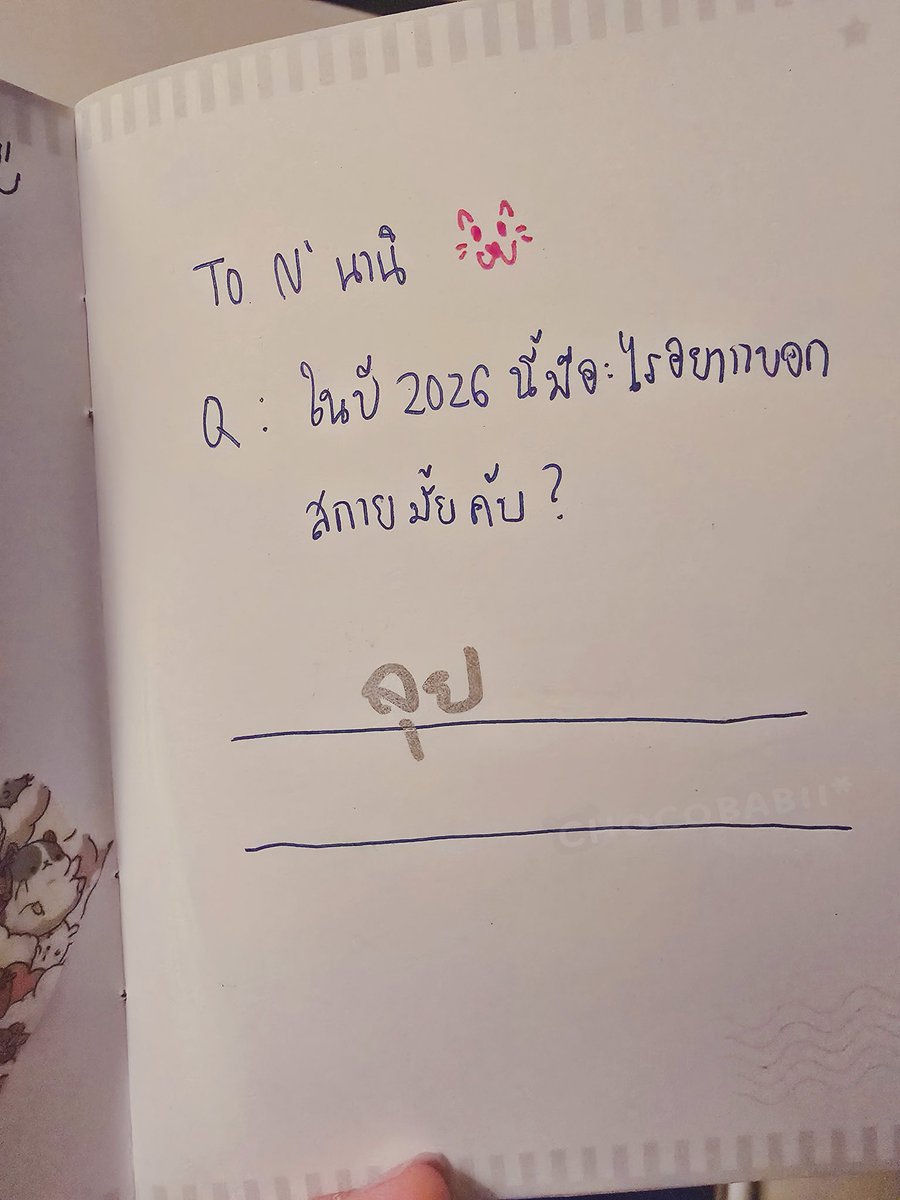 To N' นานิ
Q : ในปี 2026 นี้มีอะไรอยากบอก
สกายมั้ยคับ ?
ลุย
CHOCOBABII*